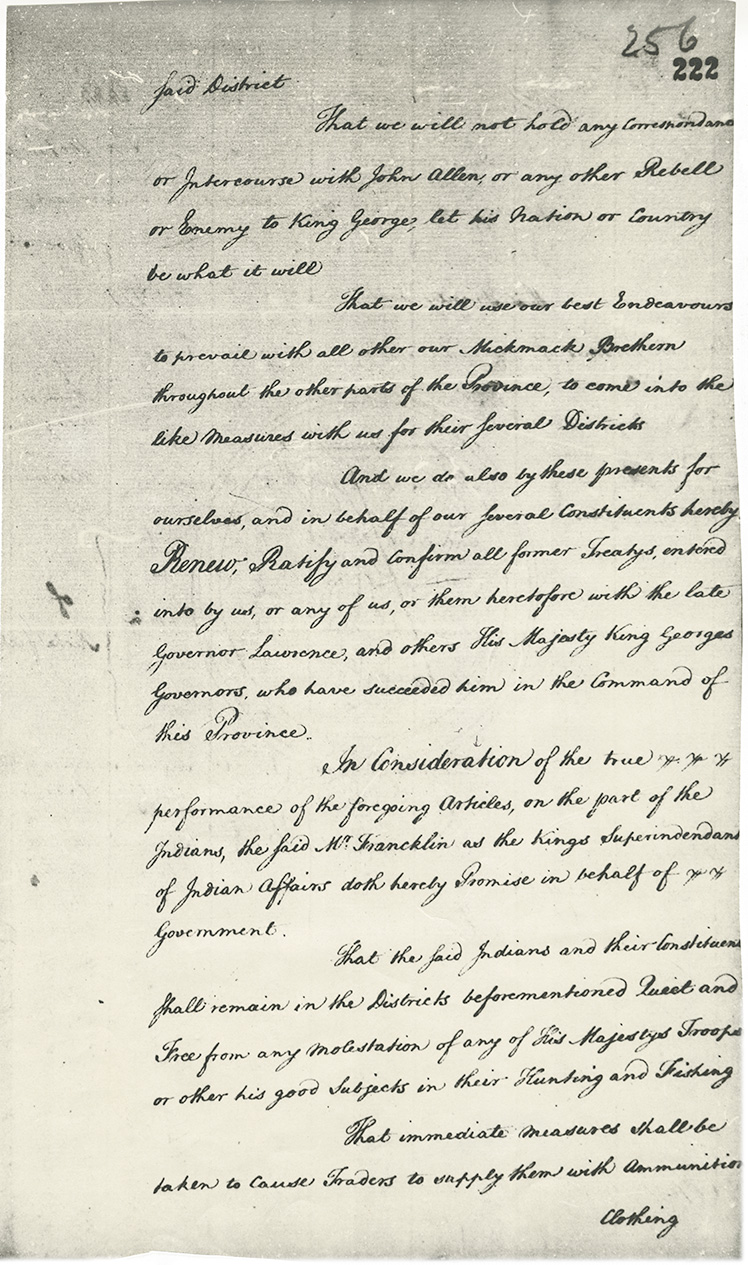 256
222
said District
That we will not hold any Correspondanc
or Intercourse with John Allen, or any other Rebell
or Enemy to King George, let his Nation or Country
be what it will
That we will use our best Endeavours
to prevail with all other our Mickmack Brethern
throughout the other parts of the Province, to come into the
like measures with us for their several Districts
And we do also by these presents for
ourselves, and in behalf of our several Constituents hereby
Renew, Ratify and Confirm all former Treatys, entered
into by us, or any of us, or them heretofore with the late
Governor Lawrence, and others His Majesty King Georges
Governors, who have succeeded him in the Command of
this Province.
In Consideration of the true
performance of the foregoing Articles, on the part of the
Indians, the said Mr. Francklin as the Kings Superindendant
of Indian Affairs doth hereby Promise in behalf of
Government.
That the said Indians and their Constituen
shall remain in the Districts beforementioned Quiet and
Free from any molestation of any of His Majestys Troops
or other his good Subjects in their Hunting and Fishing
That immediate measures shall be
taken to Cause Traders to supply them with Ammunition
Clothing